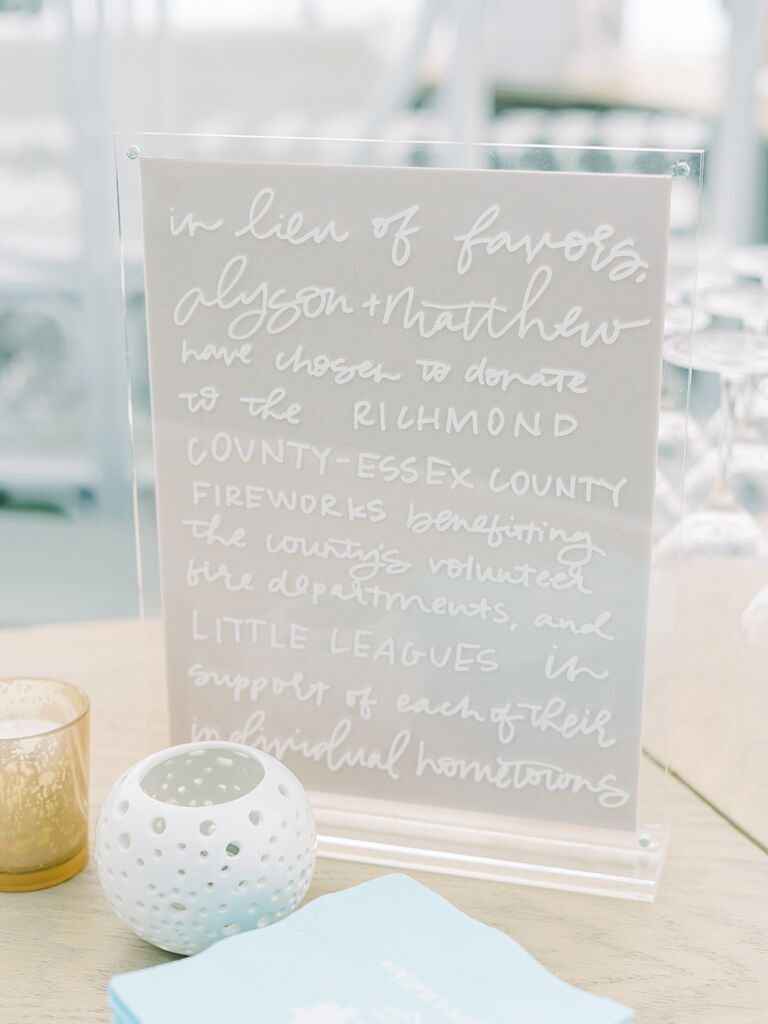 in lieu of favors,
alyson + matthew
have chosen to donate
to the RICHMOND
COUNTY-ESSEX COUNTY
FIREWORKS benefitting
the county's volunteer
fire departments, and
LITTLE LEAGUES in
support of each of their
individual hometowns